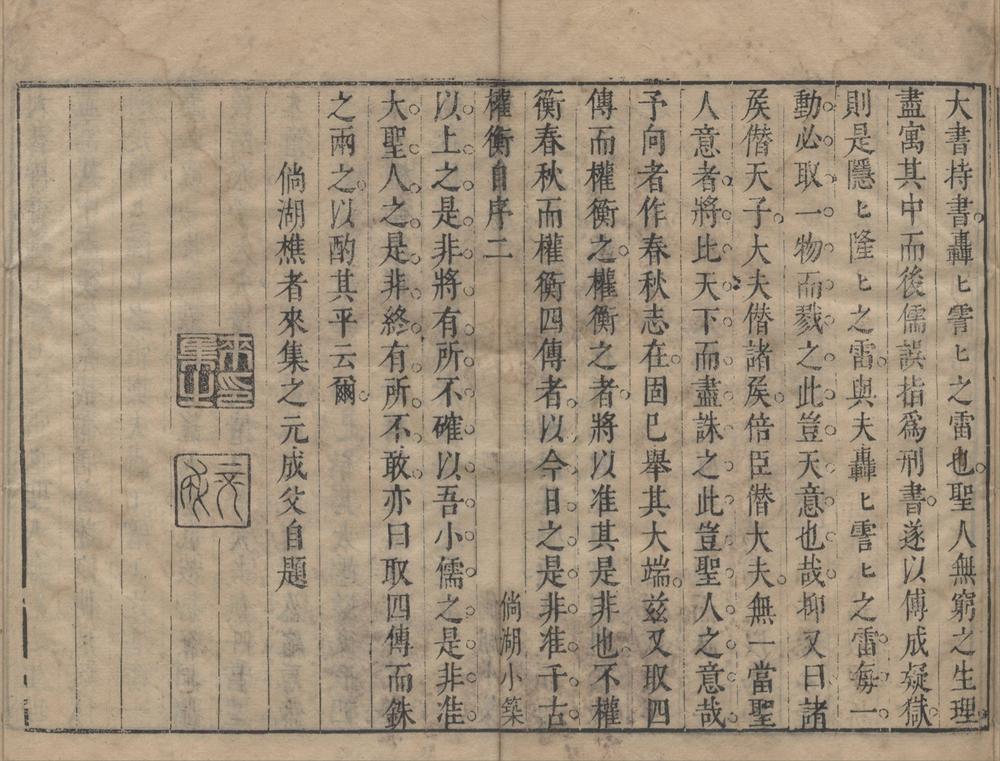 大書持書轟〻霅〻之雷也聖人無窮之生理
盡寓其中而後儒誤指爲刑書遂以傅成疑獄
則是隱〻隆〻之雷與夫轟〻霅〻之雷每一
動必取一物而戮之此豈天意也哉抑又曰諸
矦僭天子大夫僭諸矦倍臣僭大夫無一當聖
人意者將比天下而盡誅之此豈聖人之意哉
予向者作春秋志在固已舉其大端茲又取四
傳而權衡之權衡之者將以准其是非也不權
衡春秋而權衡四傳者以今日之是非准千古
權衡自序二
倘湖小築
以上之是非將有所不確以吾小儒之是非准
大聖人之是非終有所不敢亦曰取四傳而銖
之兩之以酌其平云爾
倘湖樵者來集之元成父自題
來集之印
元成